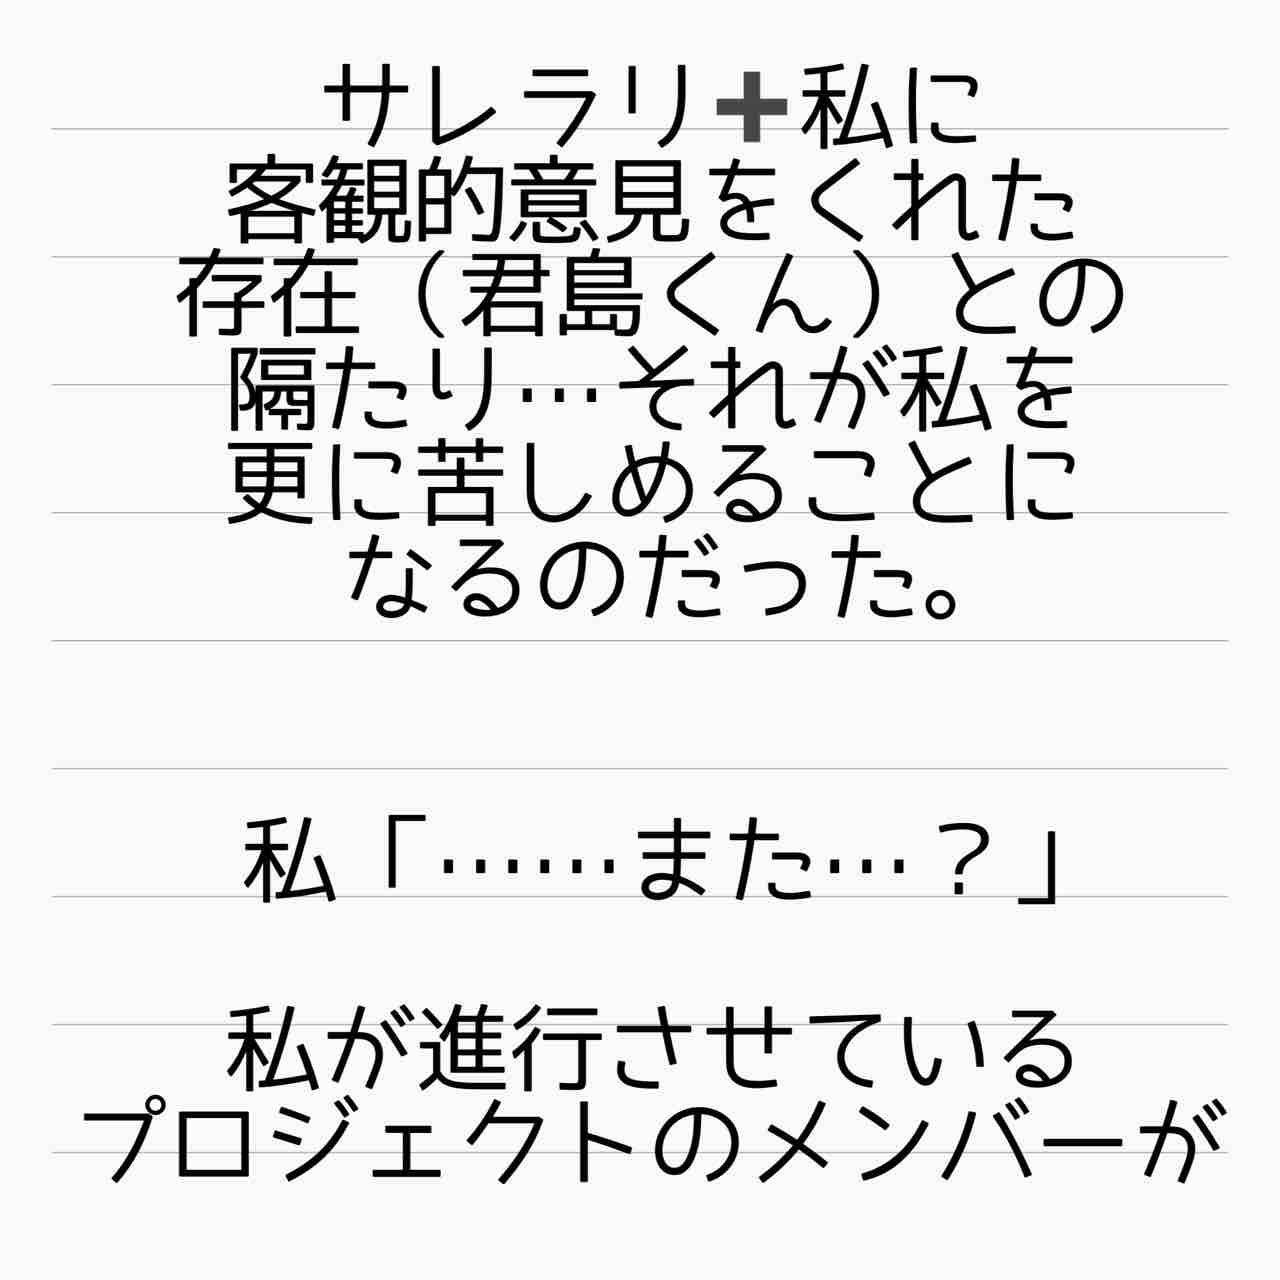 サレラリ➕私に
客観的意見をくれた
存在（君島くん）との
隔たり…それが私を
更に苦しめることに
なるのだった。
私「……また…？」
私が進行させている
プロジェクトのメンバーが